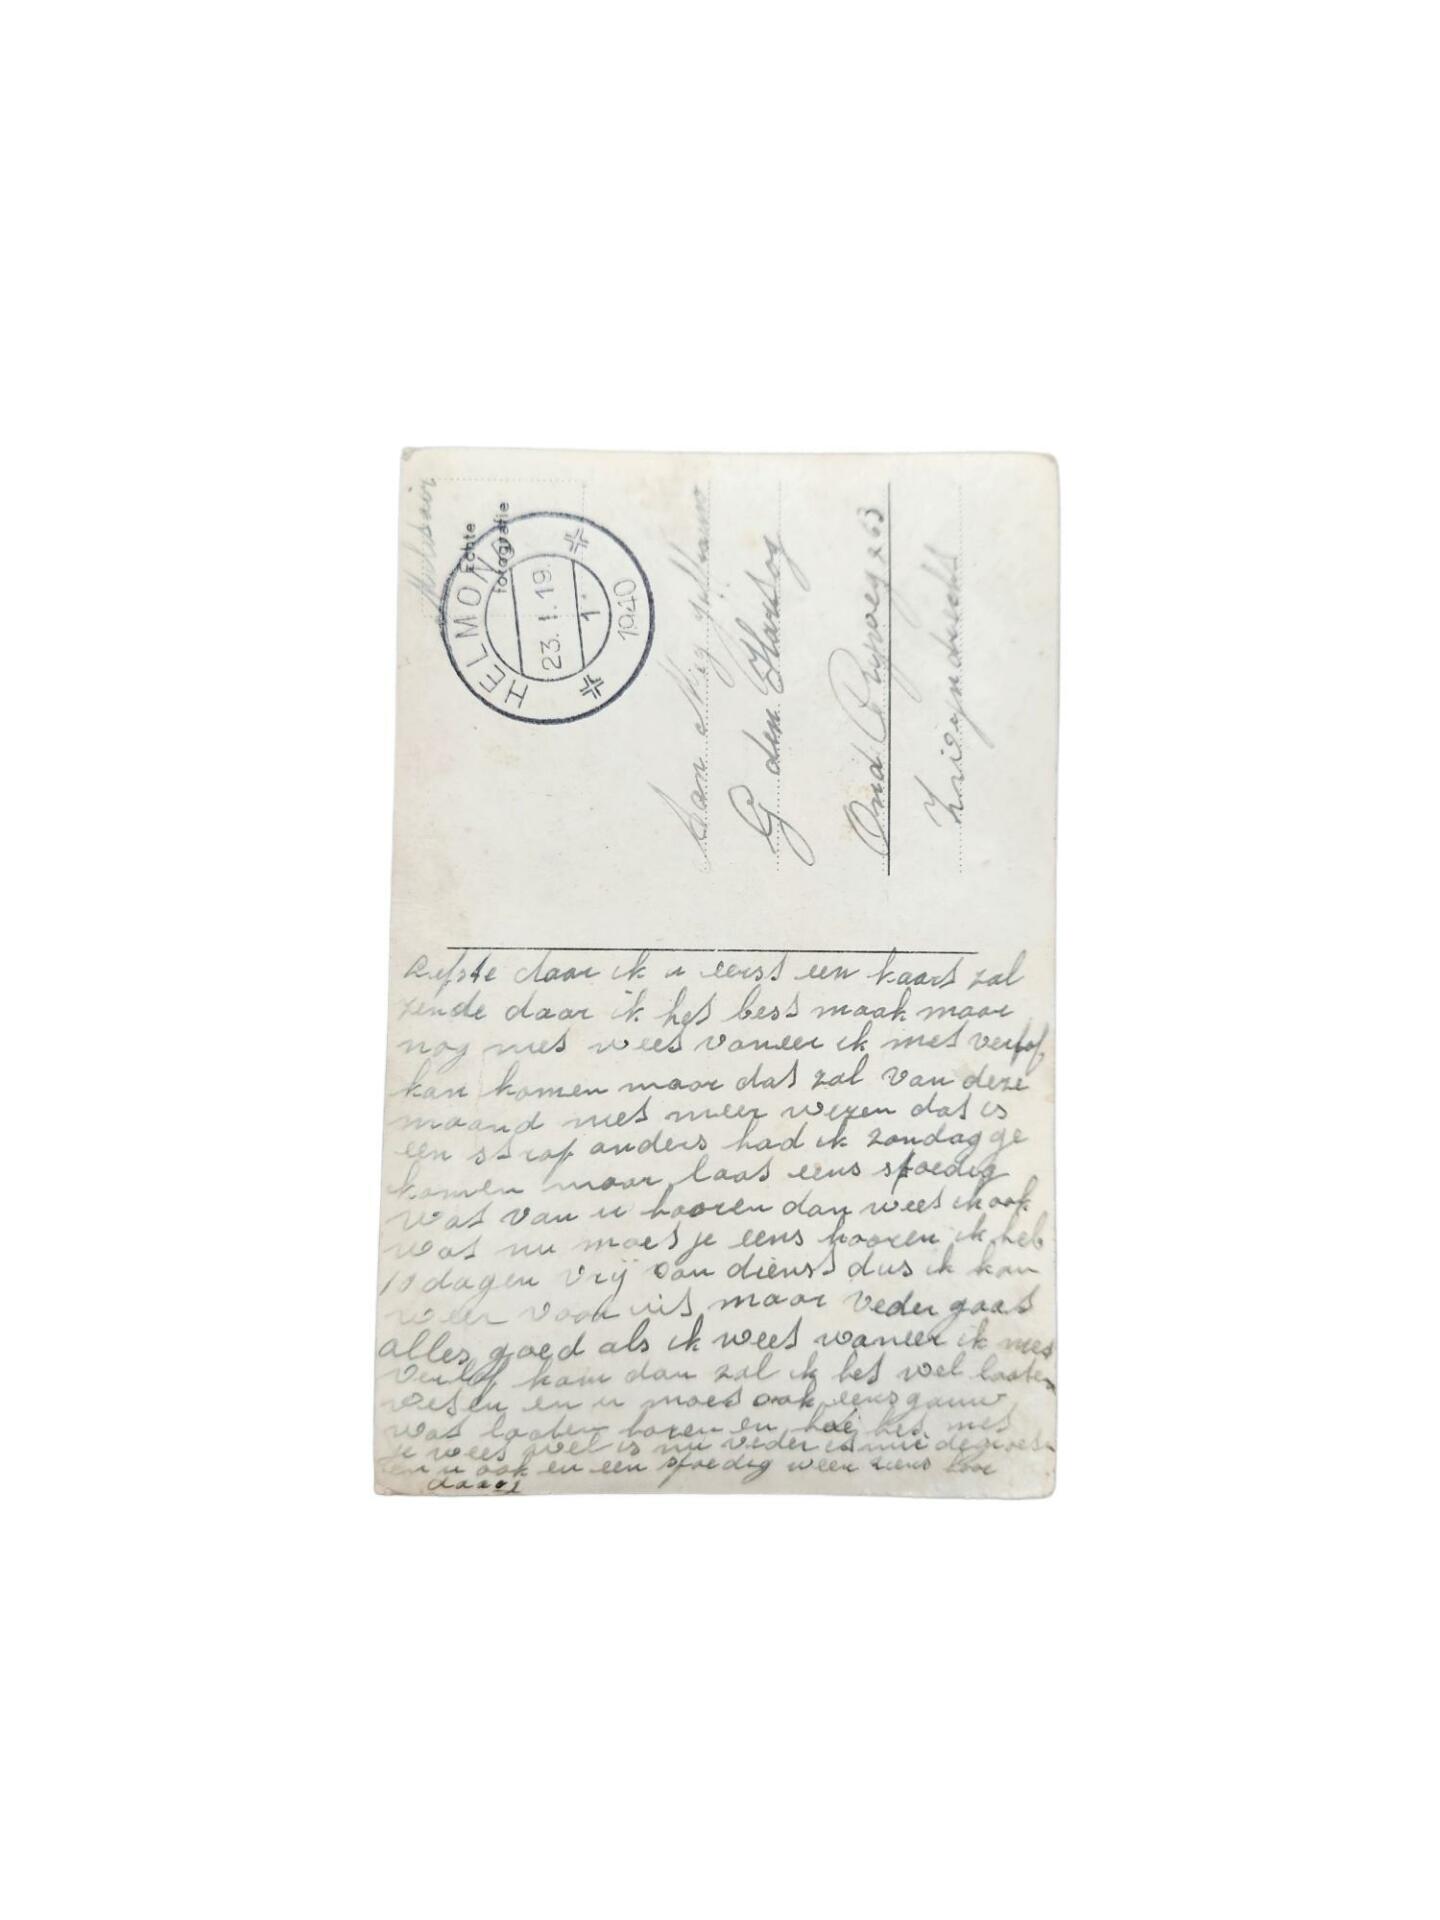 Echte
fotografie
HELMOND
23.1.19.
1.
1940
Aan Mej
G den Hartog
Oud
Zwijndrecht
Liefste daar ik u eerst een kaart zal
zende daar ik het best maak maar
nog niet weet vaneer ik met verlof
kan komen maar dat zal van deze
maand niet meer wezen dat is
een strop anders had ik zondag ge
komen maar laat eens spoedig
wat van u hooren dan weet ik ook
wat nu moet je eens hooren ik heb
10 dagen vrij van dienst dus ik kan
weer voor uit maar veder gaat
alles goed als ik weet waneer ik met
verlof kom dan zal ik het wel laaten
weten en u moet ook eens gauw
wat laaten horen en hoe het met
je wees wel is nu veder is
en u ook en een spoedig weer ziens
daaat